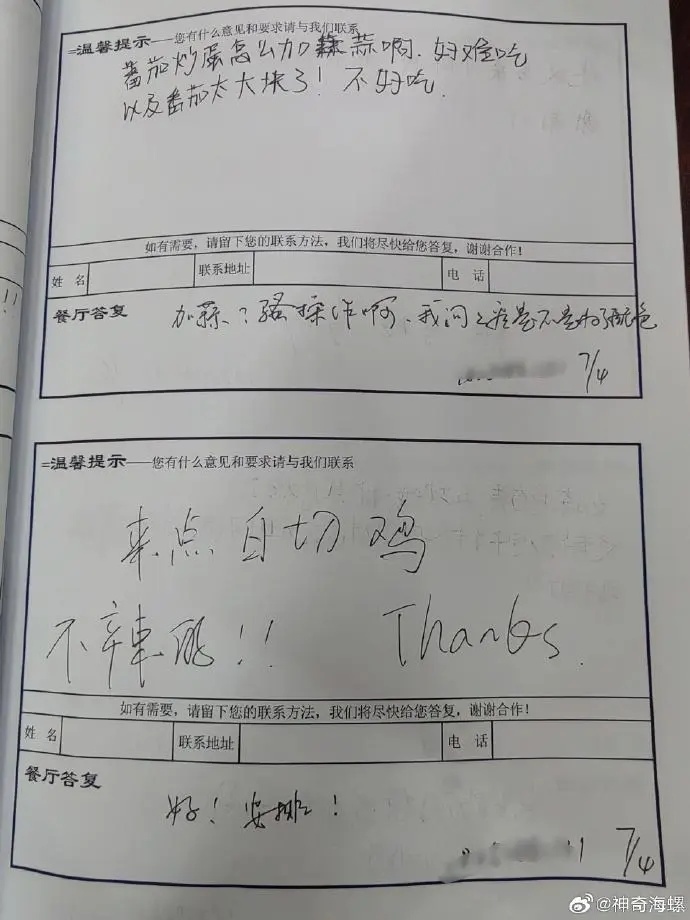 =温馨提示——您有什么意见和要求请与我们联系
蕃茄炒蛋怎么加蒜啊.好难吃
以及番茄太大块了！不好吃.
如有需要，请留下您的联系方法，我们将尽快给您答复，谢谢合作！
姓 名 联系地址 电 话
餐厅答复 加蒜？骚操作啊、我问之后是不是为了配色
7/4
=温馨提示——您有什么意见和要求请与我们联系
来点白切鸡
不辣死!! Thanks.
如有需要，请留下您的联系方法，我们将尽快给您答复，谢谢合作！
姓 名 联系地址 电 话
餐厅答复
好！安排！
7/4
@神奇海螺